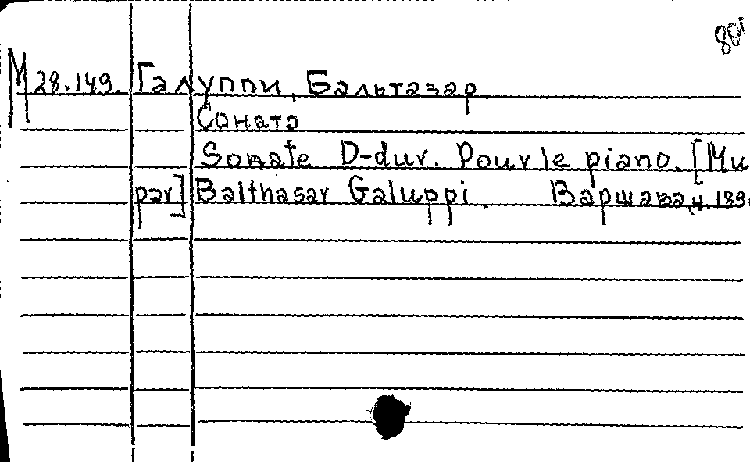 М 28.149. Галуппи, Бальтазар
Соната
Sonate D-dur. Pour le piano. [Mu
par] Balthasar Galuppi. Варшава,ч.189